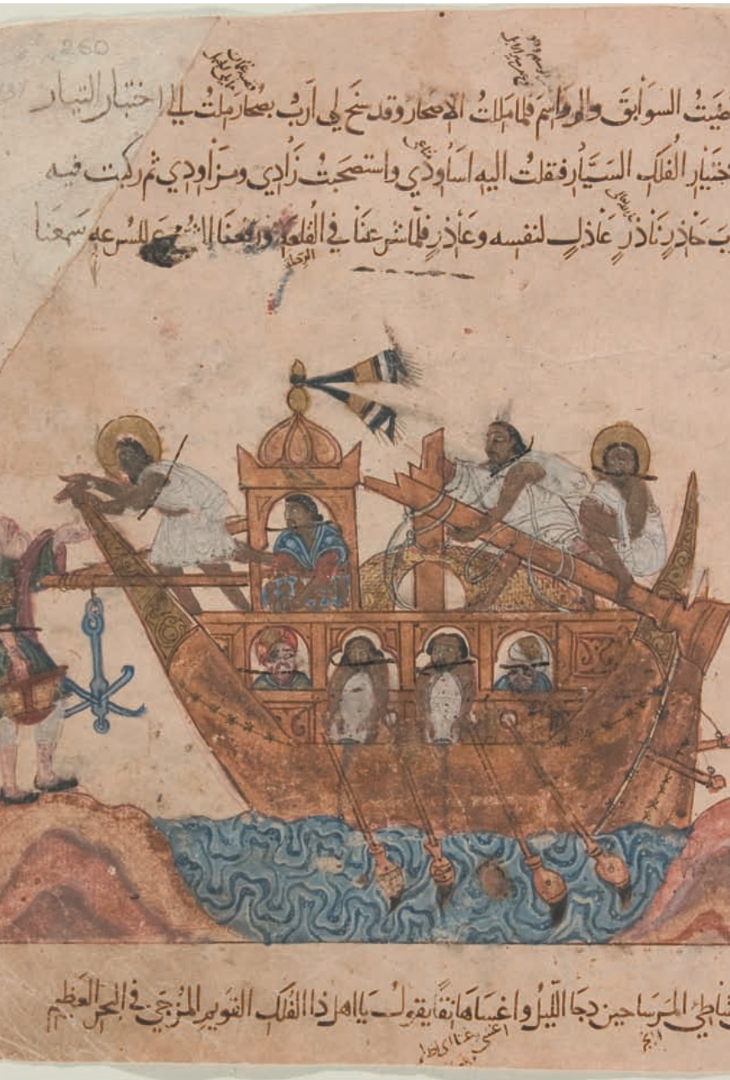 260
ضَيتُ السوَابقَ والرواسِمَ فلما مَلِلتُ الاصحار وقد سَنحَ لي أَربُ بصُحار مِلتُ الى اختبار التيار
ختيَار الفُلكِ السَيَّار فنقلتُ اليه اسَاودي واستصحبتُ زَادي ومزَاودي ثم ركبت فيه
بَ حَاذرٍ نَاذرٍ عَاذلٍ لنفسه وعَاذرٍ فلمَّا شرعنَا في القُلعَةِ ورفعنَا الشُرُعَ للسُرعه سَمعنَا
شاطئِ المَرسَا حين دجَا اللّيلُ واغسَا هَاتفًا يقولُ يَا اهل ذا الفُلكِ القويم المُزجَى في البَحر العَظيم